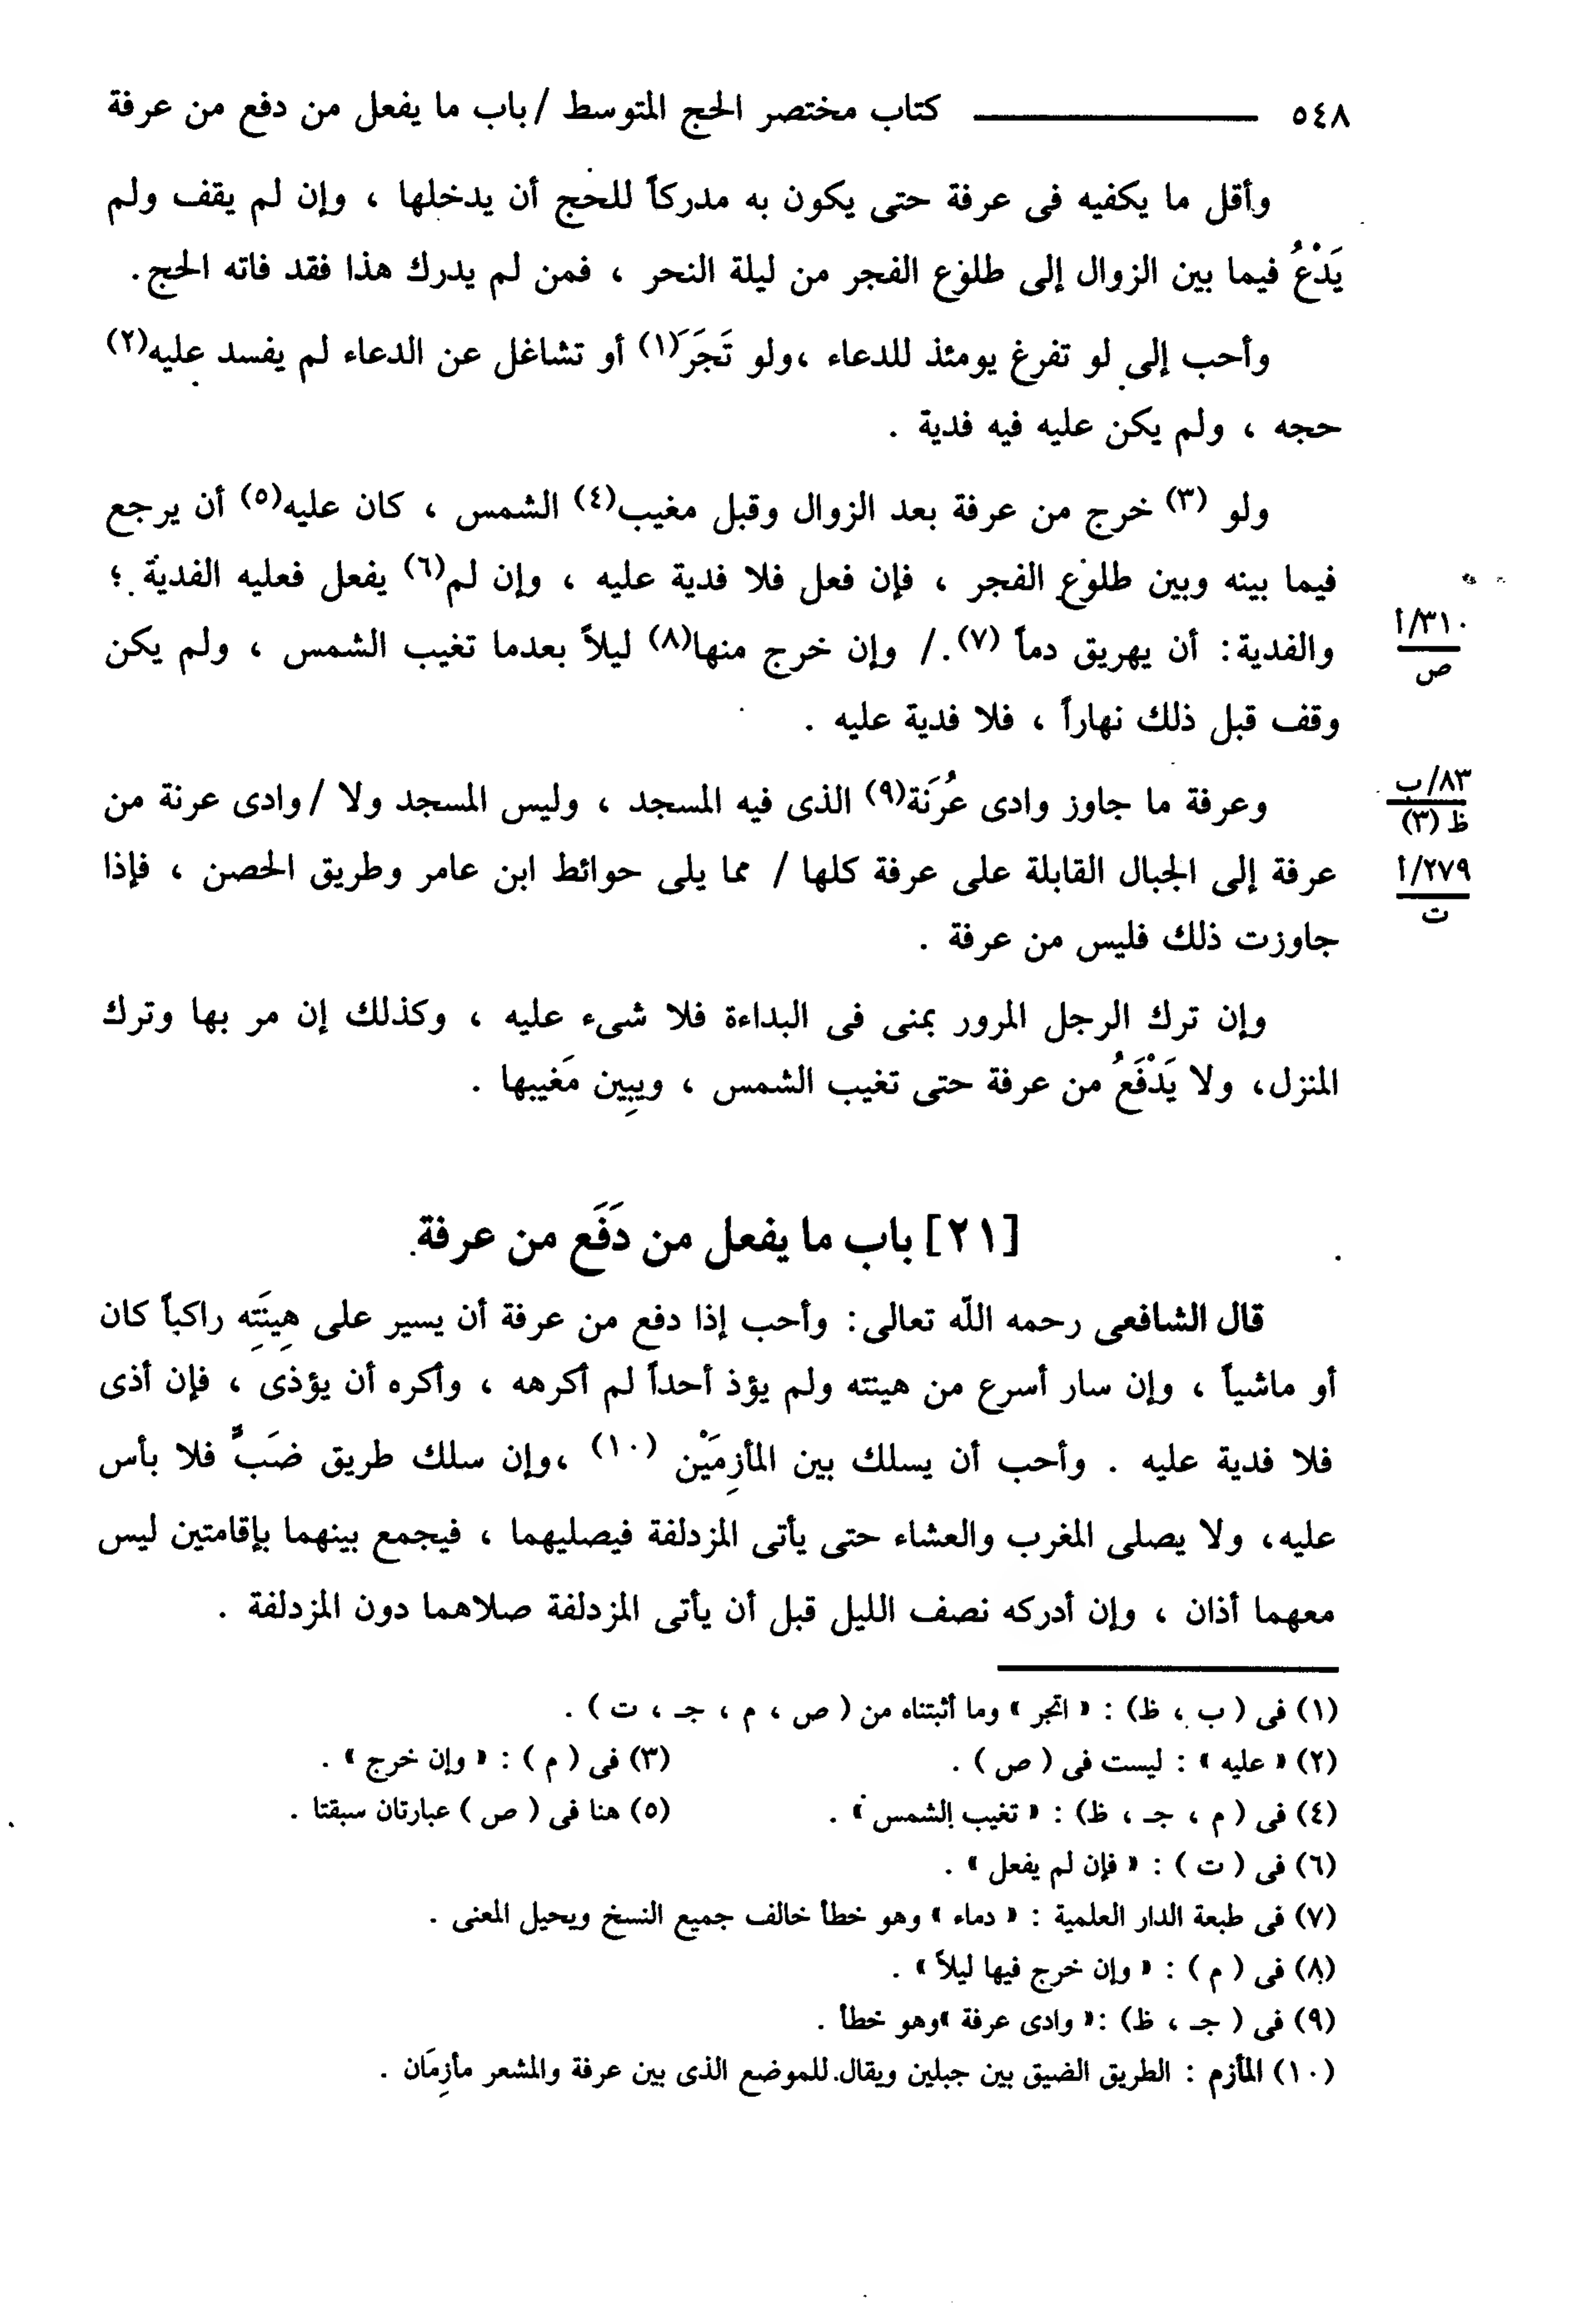 ٥٤٨ ــــــــــــــــ كتاب مختصر الحج المتوسط / باب ما يفعل من دفع من عرفة
وأقل ما يكفيه فى عرفة حتى يكون به مدركاً للحج أن يدخلها ، وإن لم يقف ولم
يَدْعُ فيما بين الزوال إلى طلوع الفجر من ليلة النحر ، فمن لم يدرك هذا فقد فاته الحج .
وأحب إلى لو تفرغ يومئذ للدعاء ،ولو تَجَرَ(١) أو تشاغل عن الدعاء لم يفسد عليه(٢)
حجه ، ولم يكن عليه فيه فدية .
ولو (٣) خرج من عرفة بعد الزوال وقبل مغيب(٤) الشمس ، كان عليه(٥) أن يرجع
فيما بينه وبين طلوع الفجر ، فإن فعل فلا فدية عليه ، وإن لم(٦) يفعل فعليه الفدية ؛
والفدية : أن يهريق دماً (٧) ./ وإن خرج منها(٨) ليلاً بعدما تغيب الشمس ، ولم يكن
٣١٠/أ
ص
وقف قبل ذلك نهاراً ، فلا فدية عليه .
وعرفة ما جاوز وادى عُرَنَة(٩) الذى فيه المسجد ، وليس المسجد ولا / وادى عرنة من
٨٣/ب
ظ (٣)
عرفة إلى الجبال القابلة على عرفة كلها / مما يلى حوائط ابن عامر وطريق الحصن ، فإذا
٢٧٩/أ
ت
جاوزت ذلك فليس من عرفة .
وإن ترك الرجل المرور بمنى فى البداءة فلا شىء عليه ، وكذلك إن مر بها وترك
المنزل، ولا يَدْفَعُ من عرفة حتى تغيب الشمس ، ويبِين مَغيبها .
[٢١] باب ما يفعل من دَفَع من عرفة
قال الشافعى رحمه الله تعالى : وأحب إذا دفع من عرفة أن يسير على هِينَتِه راكباً كان
أو ماشياً ، وإن سار أسرع من هينته ولم يؤذ أحداً لم أكرهه ، وأكره أن يؤذى ، فإن أذى
فلا فدية عليه . وأحب أن يسلك بين المأزِمَيْن (١٠) ،وإن سلك طريق ضَبٍّ فلا بأس
عليه، ولا يصلى المغرب والعشاء حتى يأتى المزدلفة فيصليهما ، فيجمع بينهما بإقامتين ليس
معهما أذان ، وإن أدركه نصف الليل قبل أن يأتى المزدلفة صلاهما دون المزدلفة .
(١) فى ( ب ، ظ) : « اتجر » وما أثبتناه من ( ص ، م ، جـ ، ت ) .
(٢) « عليه » : ليست فى ( ص ) . (٣) فى ( م ) : « وإن خرج » .
(٤) فى ( م ، جـ ، ظ) : « تغيب الشمس » . (٥) هنا فى ( ص ) عبارتان سبقتا .
(٦) فى ( ت ) : « فإن لم يفعل » .
(٧) فى طبعة الدار العلمية : « دماء » وهو خطأ خالف جميع النسخ ويحيل المعنى .
(٨) فى ( م ) : « وإن خرج فيها ليلاً » .
(٩) فى ( جـ ، ظ) :« وادى عرفة »وهو خطأ .
(١٠) المأزم : الطريق الضيق بين جبلين ويقال للموضع الذى بين عرفة والمشعر مأزِمَان .